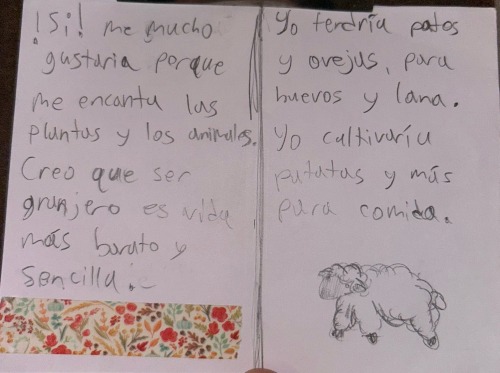 ¡Si! me mucho
gustaria porque
me encanta las
plantas y los animales.
Creo que ser
granjero es vida
más barato y
sencilla.
Yo tendría patos
y ovejas, para
huevos y lana.
Yo cultivaría
patatas y más
para comida.